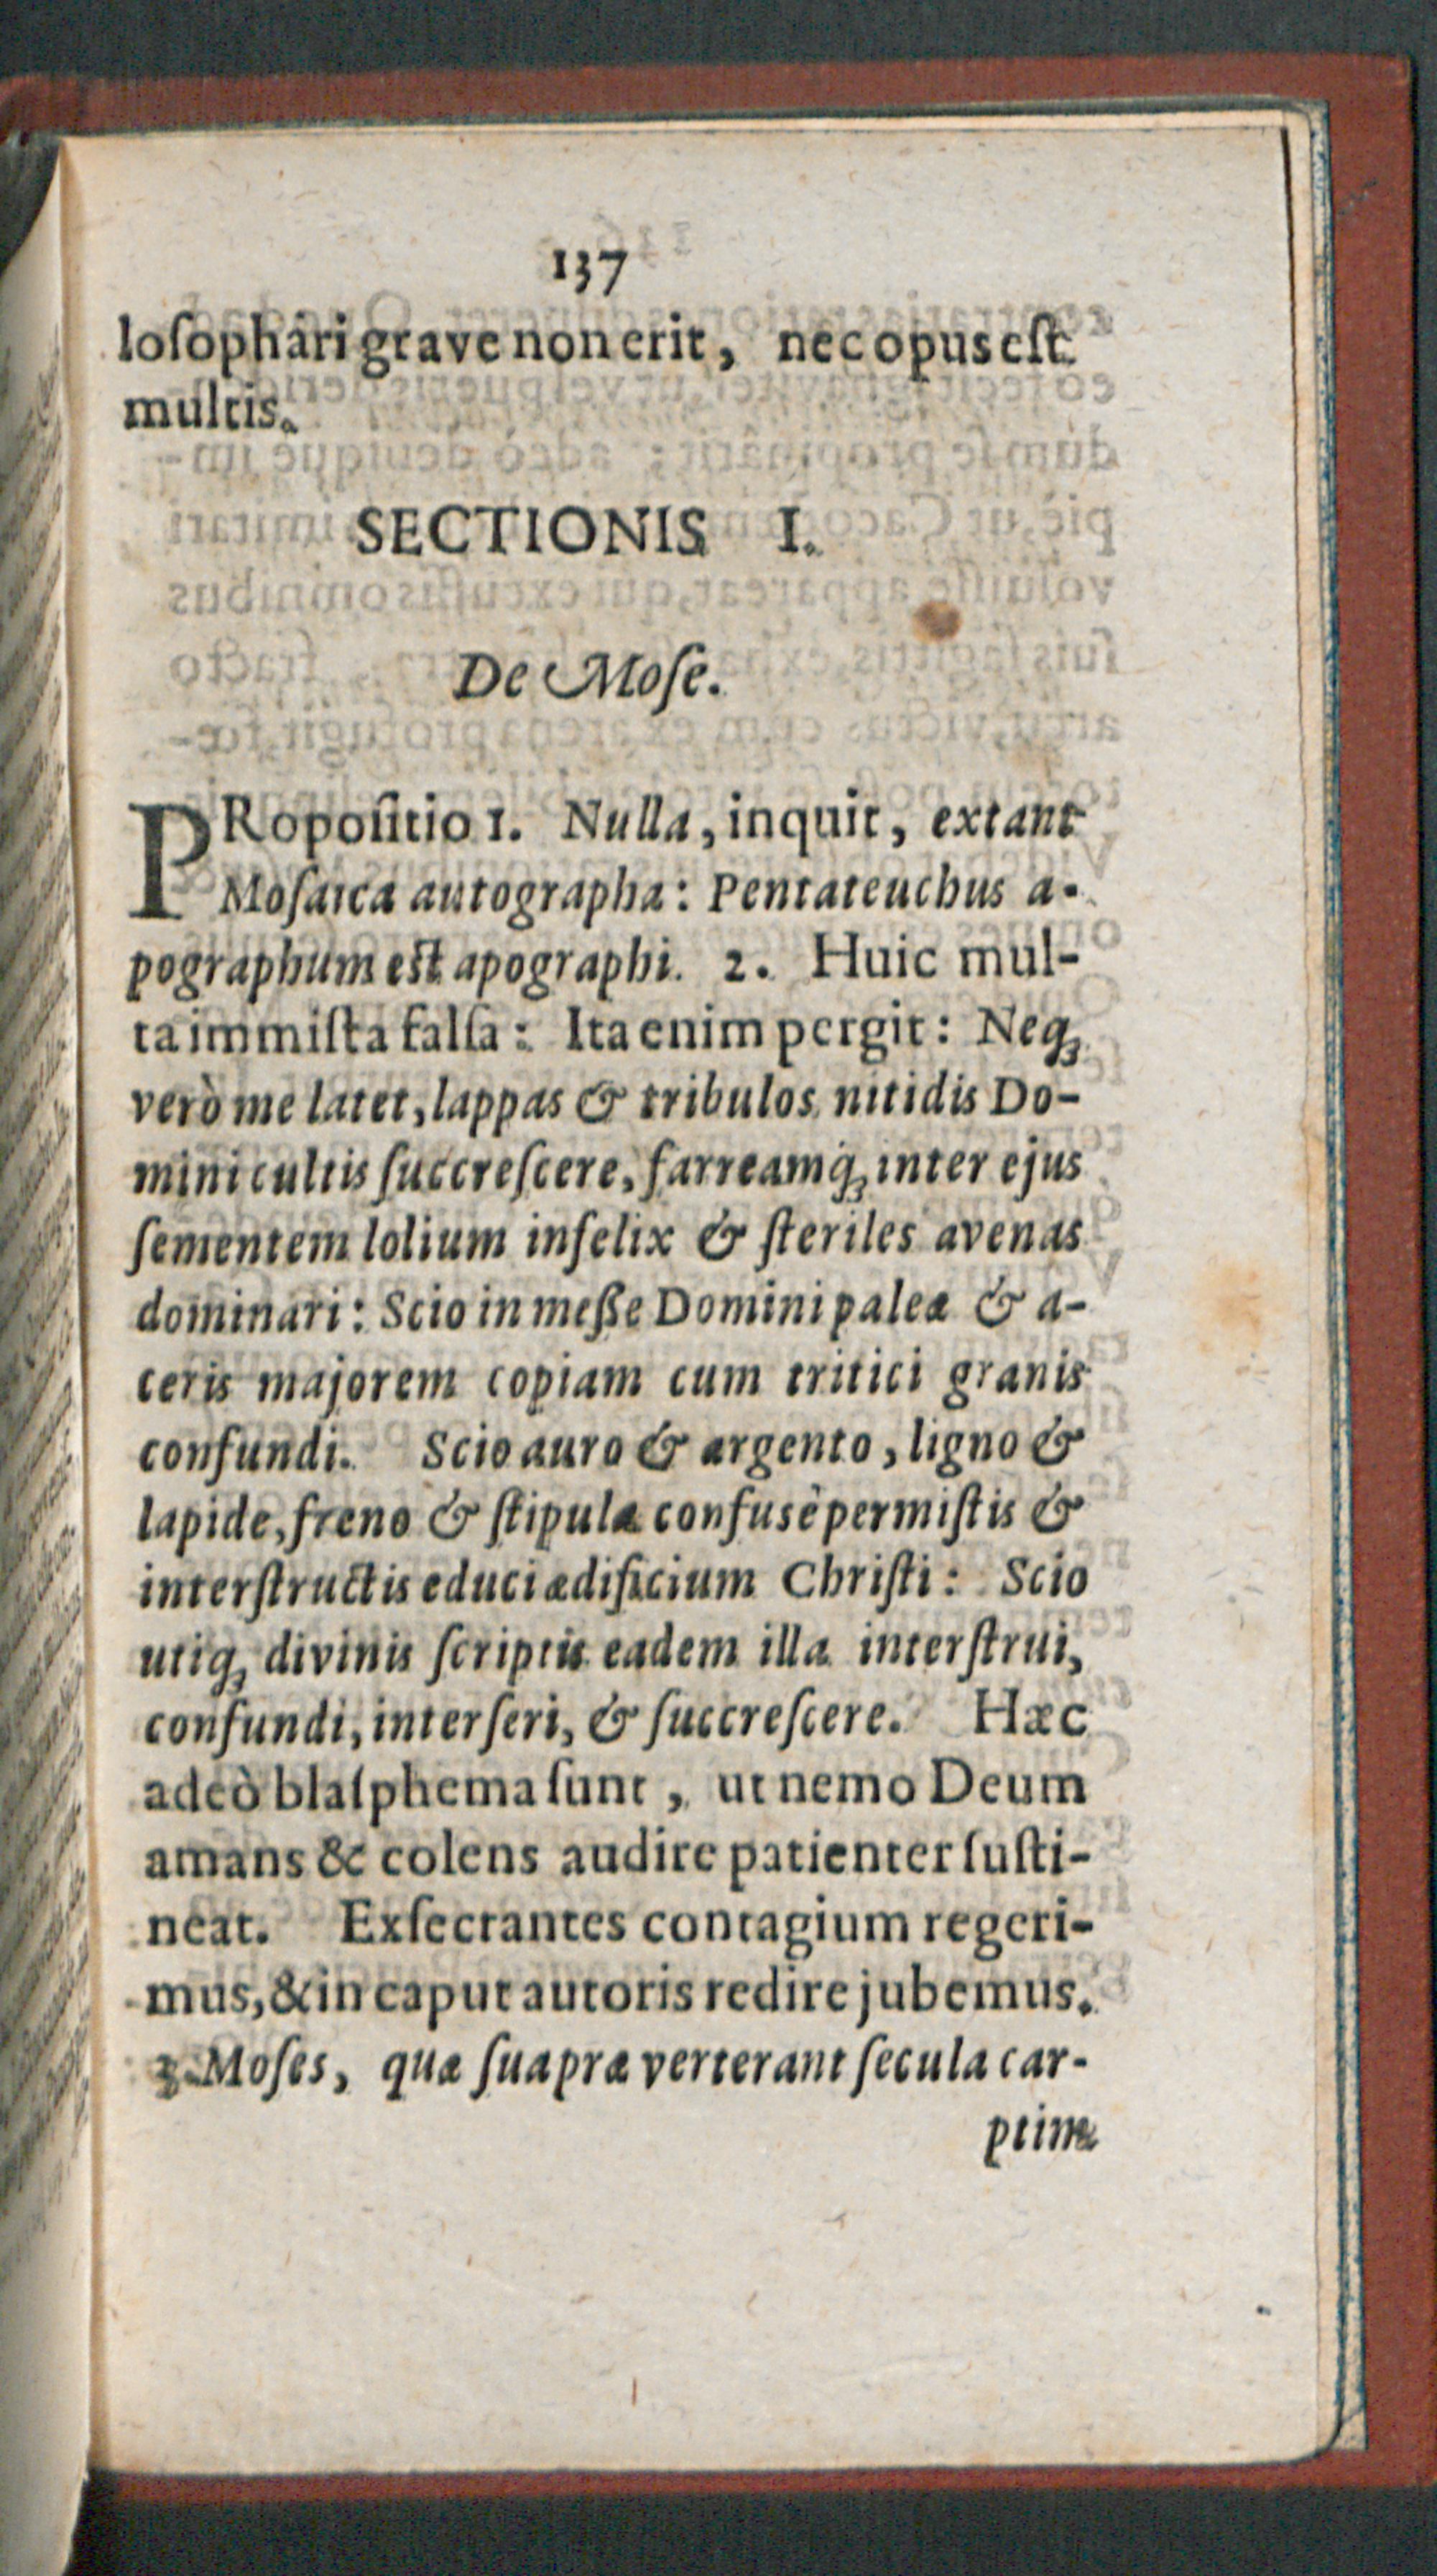 137
loſophari grave non erit, nec opus eſt
multis.
SECTIONIS I.
De Moſe.
PRopoſitio 1. Nulla, inquit, extant
Moſaica autographa: Pentateuchus a-
pographum est apographi. 2. Huic mul-
ta immiſta falſa: Ita enim pergit: Neq;
verò me latet, lappas & tribulos nitidis Do-
mini cultis ſuccreſcere, farreamq́; inter ejus
ſementem lolium infelix & ſteriles avenas
dominari: Scio in meſſe Domini paleæ & a-
ceris majorem copiam cum tritici granis
confundi. Scio auro & argento, ligno &
lapide, freno & ſtipula confusè permiſtis &
interſtructis educi ædificium Chriſti: Scio
utiq; divinis ſcriptis eadem illa interſtrui,
confundi, interſeri, & ſuccreſcere. Hæc
adeò blaſphema ſunt, ut nemo Deum
amans & colens audire patienter ſuſti-
neat. Exſecrantes contagium regeri-
mus, & in caput autoris redire jubemus.
3. Moſes, quæ ſua præverterant ſecula car-
ptim